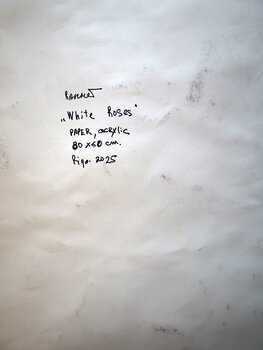 „White Roses"
PAPER, acrylic
80 x 60 cm.
Riga. 2025